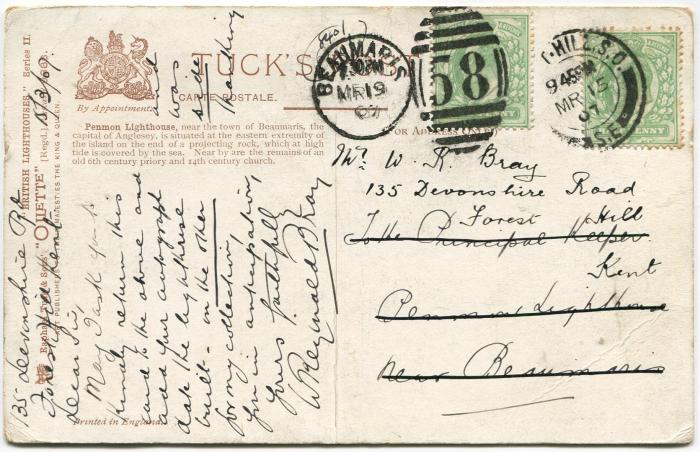 TUCK'S POST
CARTE POSTALE.
By Appointment.
(FOR ADDRESS ONLY)
Penmon Lighthouse, near the town of Beaumaris, the
capital of Anglesey, is situated at the eastern extremity of
the island on the end of a projecting rock, which at high
tide is covered by the sea. Near by are the remains of an
old 6th century priory and 14th century church.
"BRITISH LIGHTHOUSES." Series II.
Raphael Tuck & Sons' "OILETTE" [Regd.]
MAJESTIES THE KING & QUEEN.
Printed in England.
BEAUMARIS
7.30PM
MR 19
07
58
HILL.S.O.
9.45PM
MR 15
07
S.E.
PENNY
15/3/07
135 Devonshire Rd
Forest Hill
Kent
Dear Sir,
May I ask you to
kindly return this
card to the above and
add your autograph
date the lighthouse
built - on the other
side
and
was
for my collection,
thanking
you in anticipation,
Yours faithfully
W Reynold Bray
Mr. W. R. Bray
135 Devonshire Road
Forest Hill
To the Principal Keeper
Kent
Penmon Lighthouse
near Beaumaris